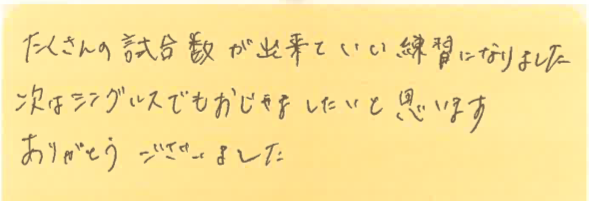 たくさんの試合数が出来ていい練習になりました
次はシングルスでもおじゃましたいと思います
ありがとうございました